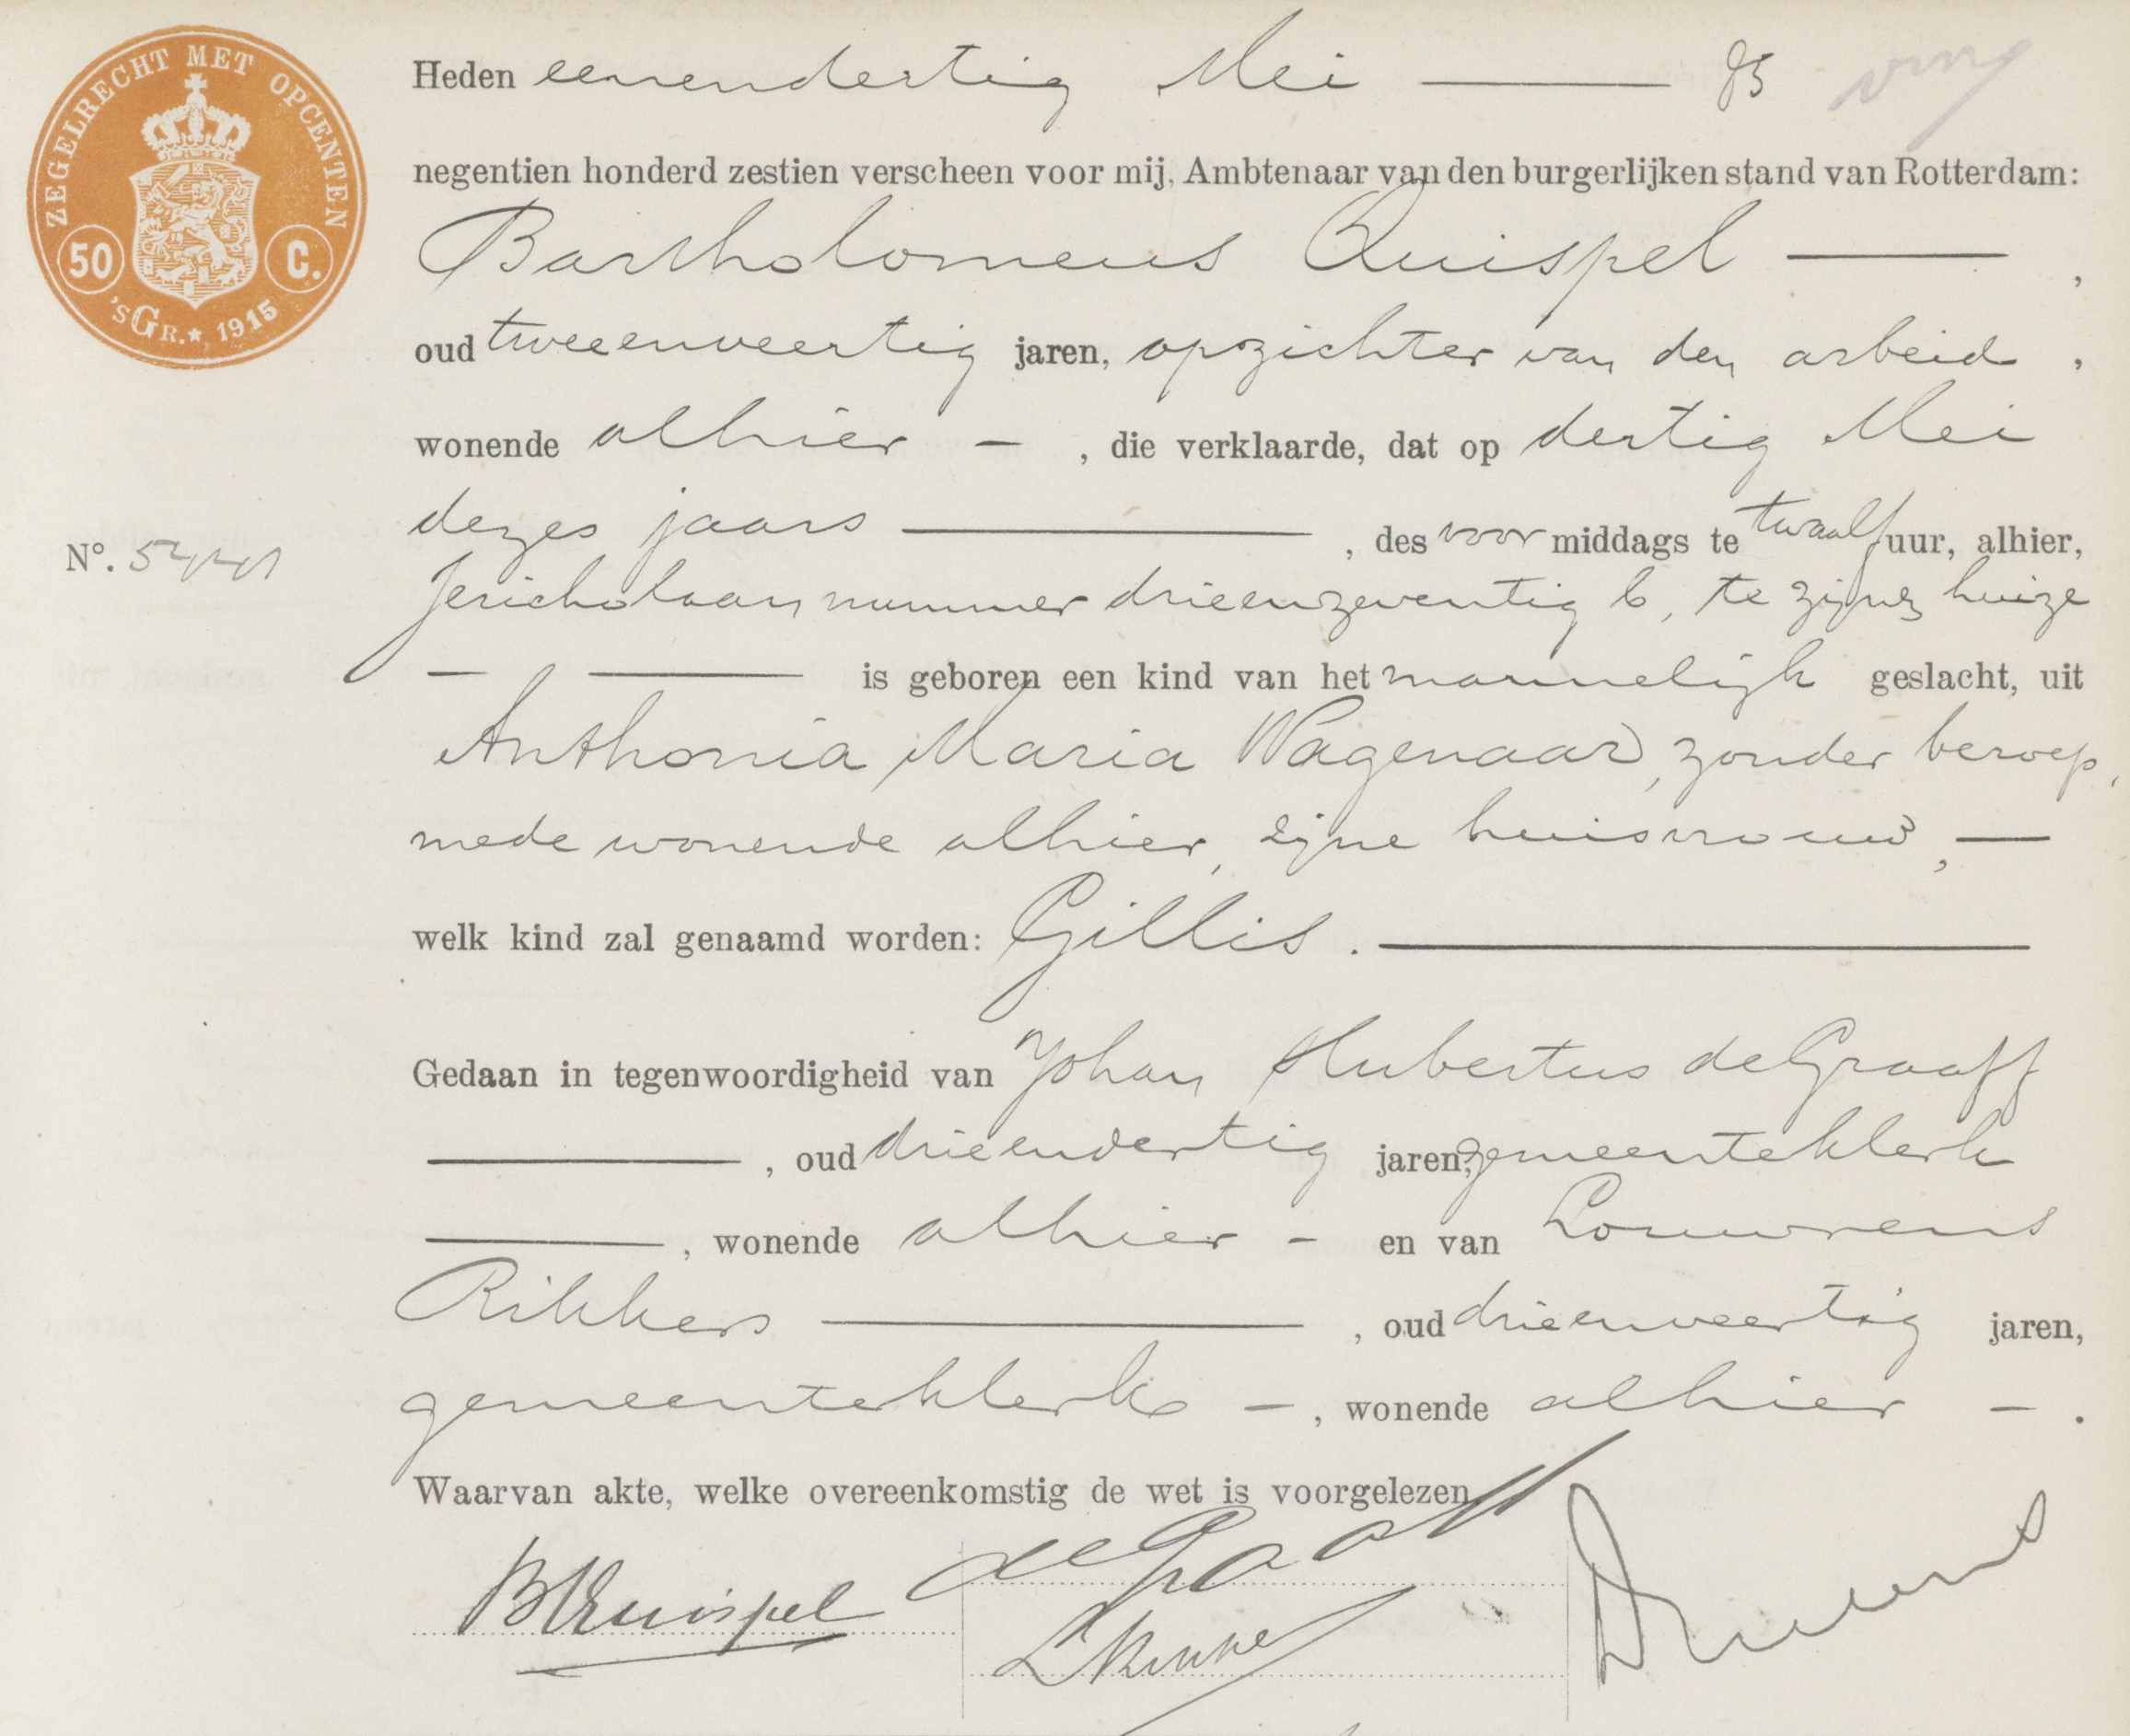 ZEGELRECHT MET OPCENTEN
50 C.
'SGR.★ 1915
Heden eenendertig Mei
negentien honderd zestien verscheen voor mij, Ambtenaar van den burgerlijken stand van Rotterdam:
Bartholomeus Quispel ,
oud tweeenveertig jaren, opzichter van den arbeid ,
wonende alhier – , die verklaarde, dat op dertig Mei
dezes jaars , des voor middags te twaalf uur, alhier,
Nº.
Jericholaan nummer drieenzeventig b, te zijnen huize
is geboren een kind van het mannelijk geslacht, uit
Anthonia Maria Wagenaar, zonder beroep,
mede wonende alhier, zijne huisvrouw, –
welk kind zal genaamd worden: Gillis.
Gedaan in tegenwoordigheid van Johan Hubertus de Graaff
, oud drieendertig jaren, gemeenteklerk
, wonende alhier – en van Louwrens
Rikkers , oud drieenveertig jaren,
gemeenteklerk – , wonende alhier – .
Waarvan akte, welke overeenkomstig de wet is voorgelezen
BQuispel
de Graaff